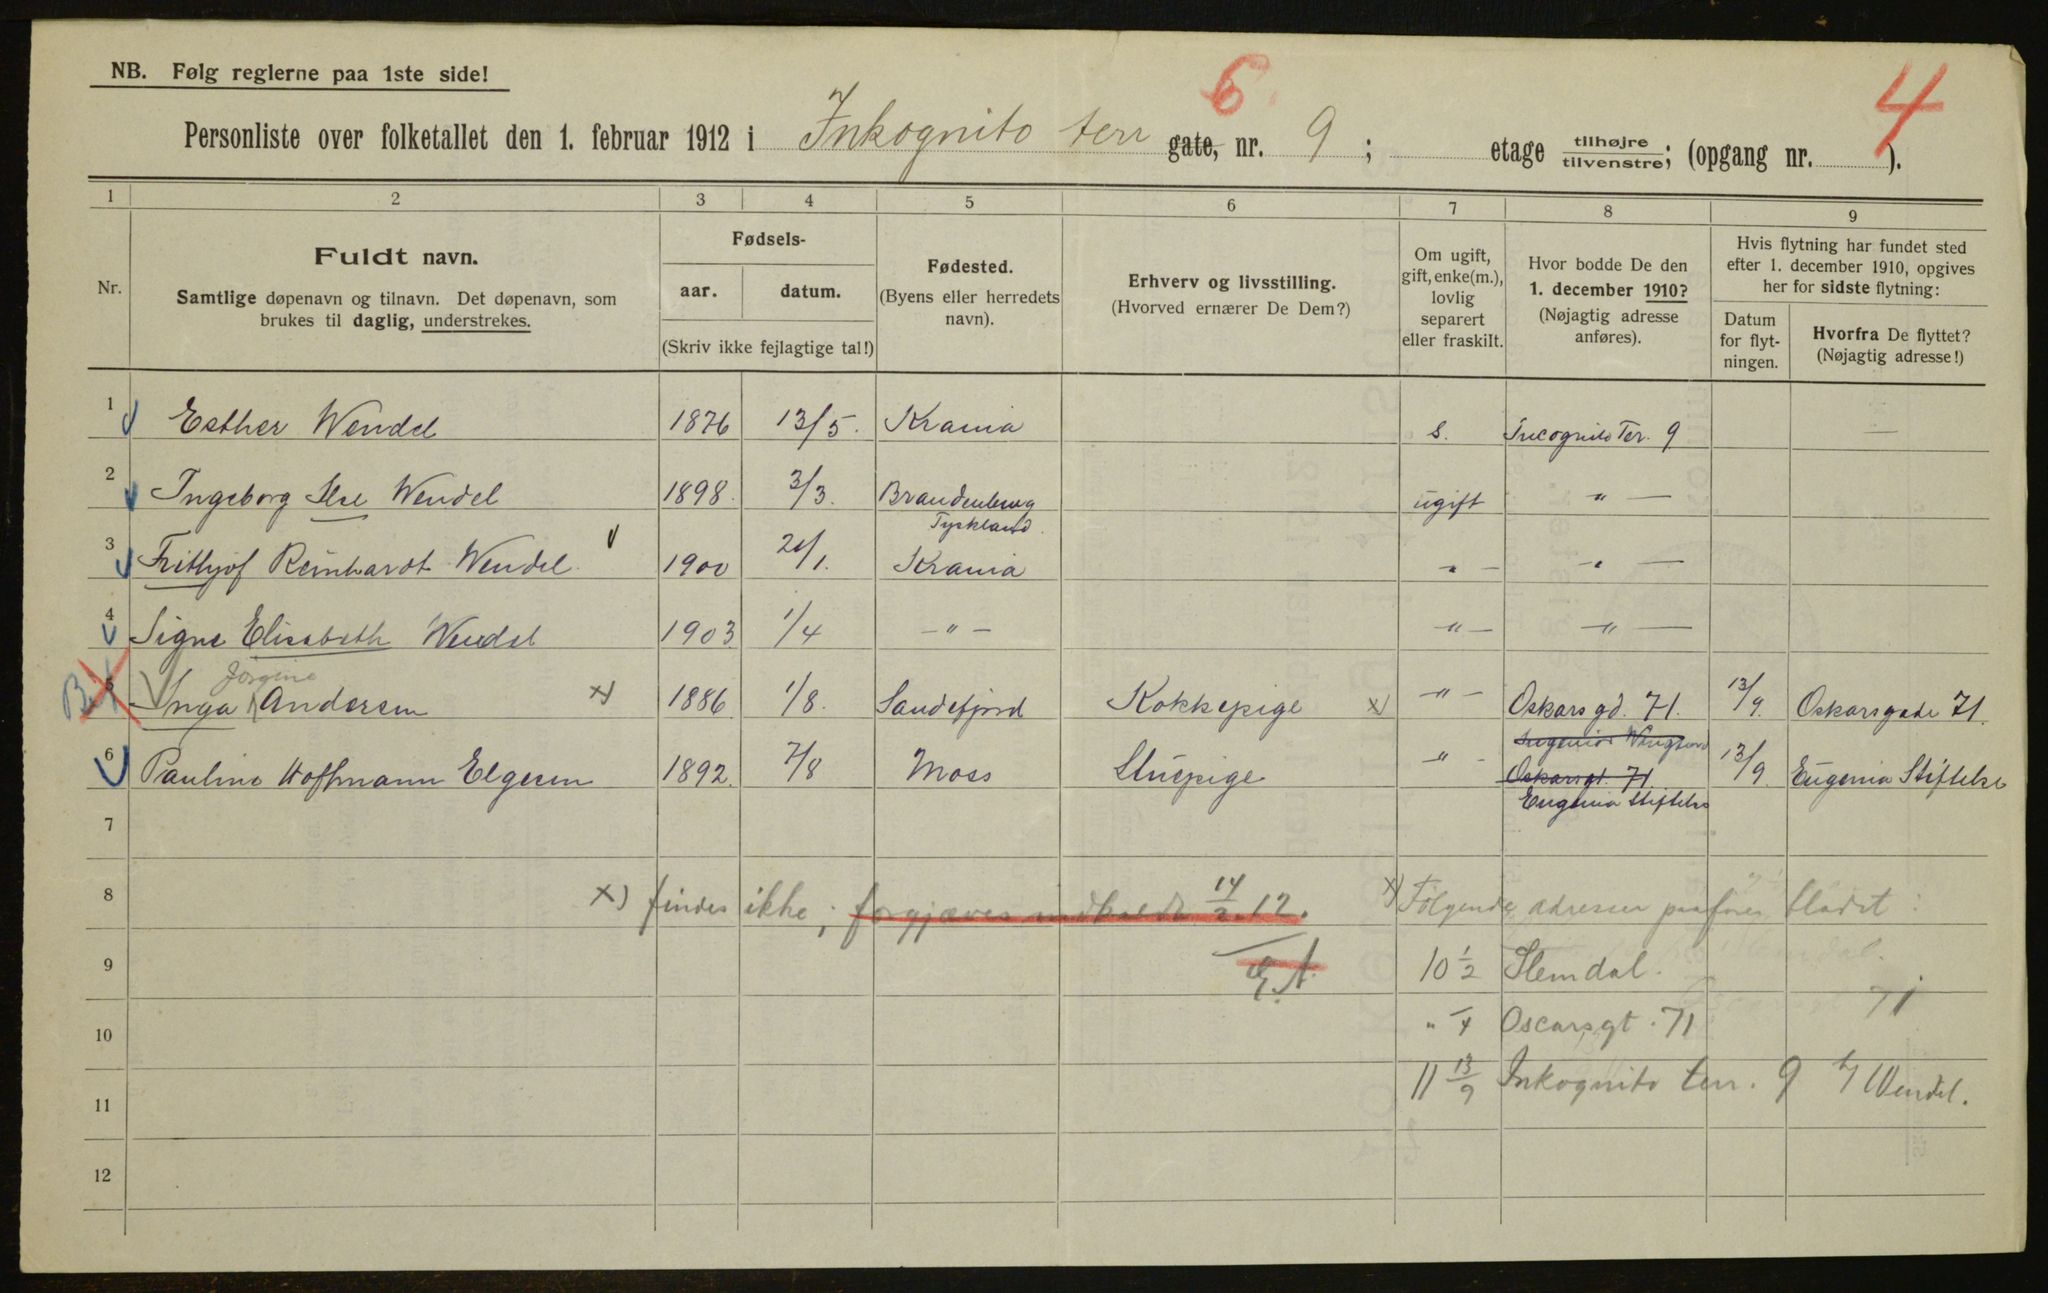 NB. Følg reglerne paa 1ste side!
6
4
Personliste over folketallet den 1. februar 1912 i Inkognito terr gate, nr. 9 ; etage tilhøjre tilvenstre; (opgang nr. ).
1 2 3 4 5 6 7 8 9
Nr.
Fuldt navn.
Samtlige døpenavn og tilnavn. Det døpenavn, som
brukes til daglig, understrekes.
Fødsels-
aar. datum.
(Skriv ikke fejlagtige tal!)
Fødested.
(Byens eller herredets
navn).
Erhverv og livsstilling.
(Hvorved ernærer De Dem?)
Om ugift,
gift, enke(m.),
lovlig
separert
eller fraskilt.
Hvor bodde De den
1. december 1910?
(Nøjagtig adresse
anføres).
Hvis flytning har fundet sted
efter 1. december 1910, opgives
her for sidste flytning:
Datum
for flyt-
ningen.
Hvorfra De flyttet?
(Nøjagtig adresse!)
1 Esther Wendel 1876 13/5. Krania s. Incognito Ter. 9 —
2 Ingeborg Ilse Wendel 1898. 3/3. Brandenburg Tyskland. ugift " —
3 Frithjof Reinhardt Wendel 1900 /1. Krania " — " —
4 Signe Elisabeth Wendel 1903 1/4 — " — " — " —
5 Inga Jørgine Andersen x) 1886 1/8. Sandefjord Kokkepige x) " — Oskarsgd. 71. 13/9. Oskarsgade 71.
6 Pauline Hoffmann Elgesen 1892. 7/8 Moss Stuepige " - Oskarsgt. 71 Eugenia Stiftelse 13/9. Eugenia Stiftelse
7
8 x) findes ikke; forgjæves indkaldt 14/2. 12. x) Følgende adresser paaføres bladet:
G. A.
9 10 1/2 Slemdal.
10 " /4 Oscarsgt. 71
11 11 13/9 Inkognito terr. 9 h/ Wendel.
12